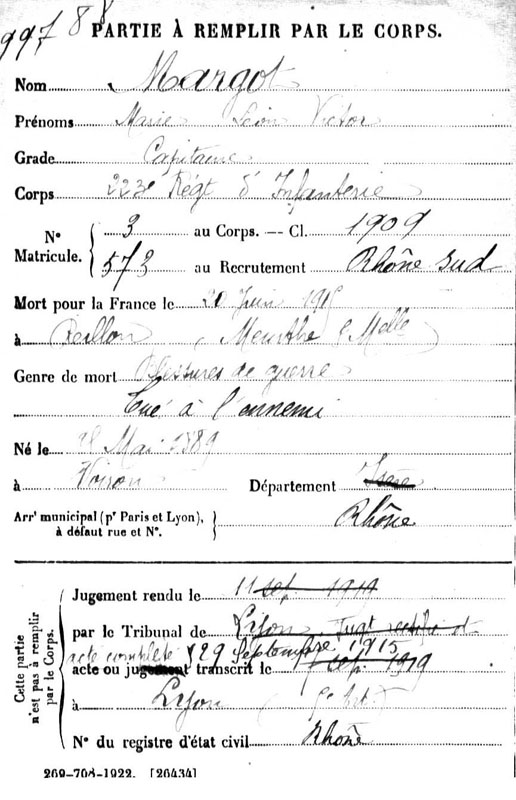 9978
PARTIE À REMPLIR PAR LE CORPS.
Nom Margot
Prénoms Marie Léon Victor
Grade Capitaine
Corps 223e Régt d'Infanterie
N° Matricule. { 3 au Corps. — Cl. 1909
573 au Recrutement Rhône Sud
Mort pour la France le 20 Juin 1915
à Reillon (Meurthe & Melle)
Genre de mort Blessures de guerre
Tué à l'ennemi
Né le 28 Mai 1889
à Voiron Département Isère
Arrt municipal (pr Paris et Lyon), à défaut rue et N°. } Rhône
Cette partie n'est pas à remplir par le Corps.
Jugement rendu le 11 sept 1919
par le Tribunal de Lyon, Jugt
acte complété 29 Septembre 1915
acte ou jugement transcrit le sept. 1919
à Lyon
N° du registre d'état civil Rhône
269-708-1922. [26434]